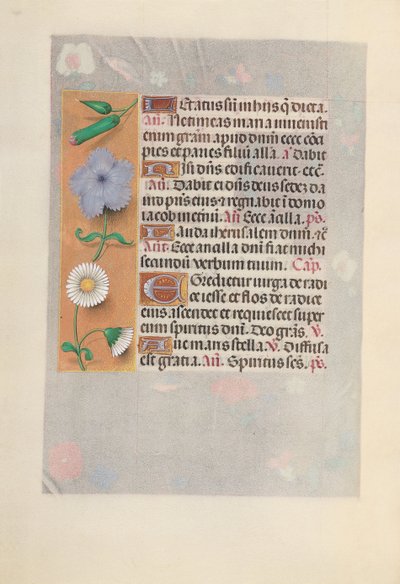 Letatus sũ in his q̃ dicta.
An̄. Ne timeas maria invenisti
enim grãm apud dñm ecce cõci
pies et paries filiũ alla. aº Dabit
Nisi dñs edificaverit. etc̃.
An̄. Dabit ei dñs deus sedez da
vid pr̃is eius et regnabit ĩ domo
iacob in etnũ. An̄. Ecce ãcilla. ps̃.
Lauda iherusalem dnm̃. etc̃
Ant̃. Ecce ancilla dnĩ fiat michi
secundũ verbum tuum. Cap̃.
Egredietur virga de radi
ce iesse et flos de radice
eius ascendet et requiescet super
eum spiritus dnĩ. Deo grãs. V.
Ave maris stella. V. Diffusa
est gratia. An̄. Spiritus scs̃. ps̃.